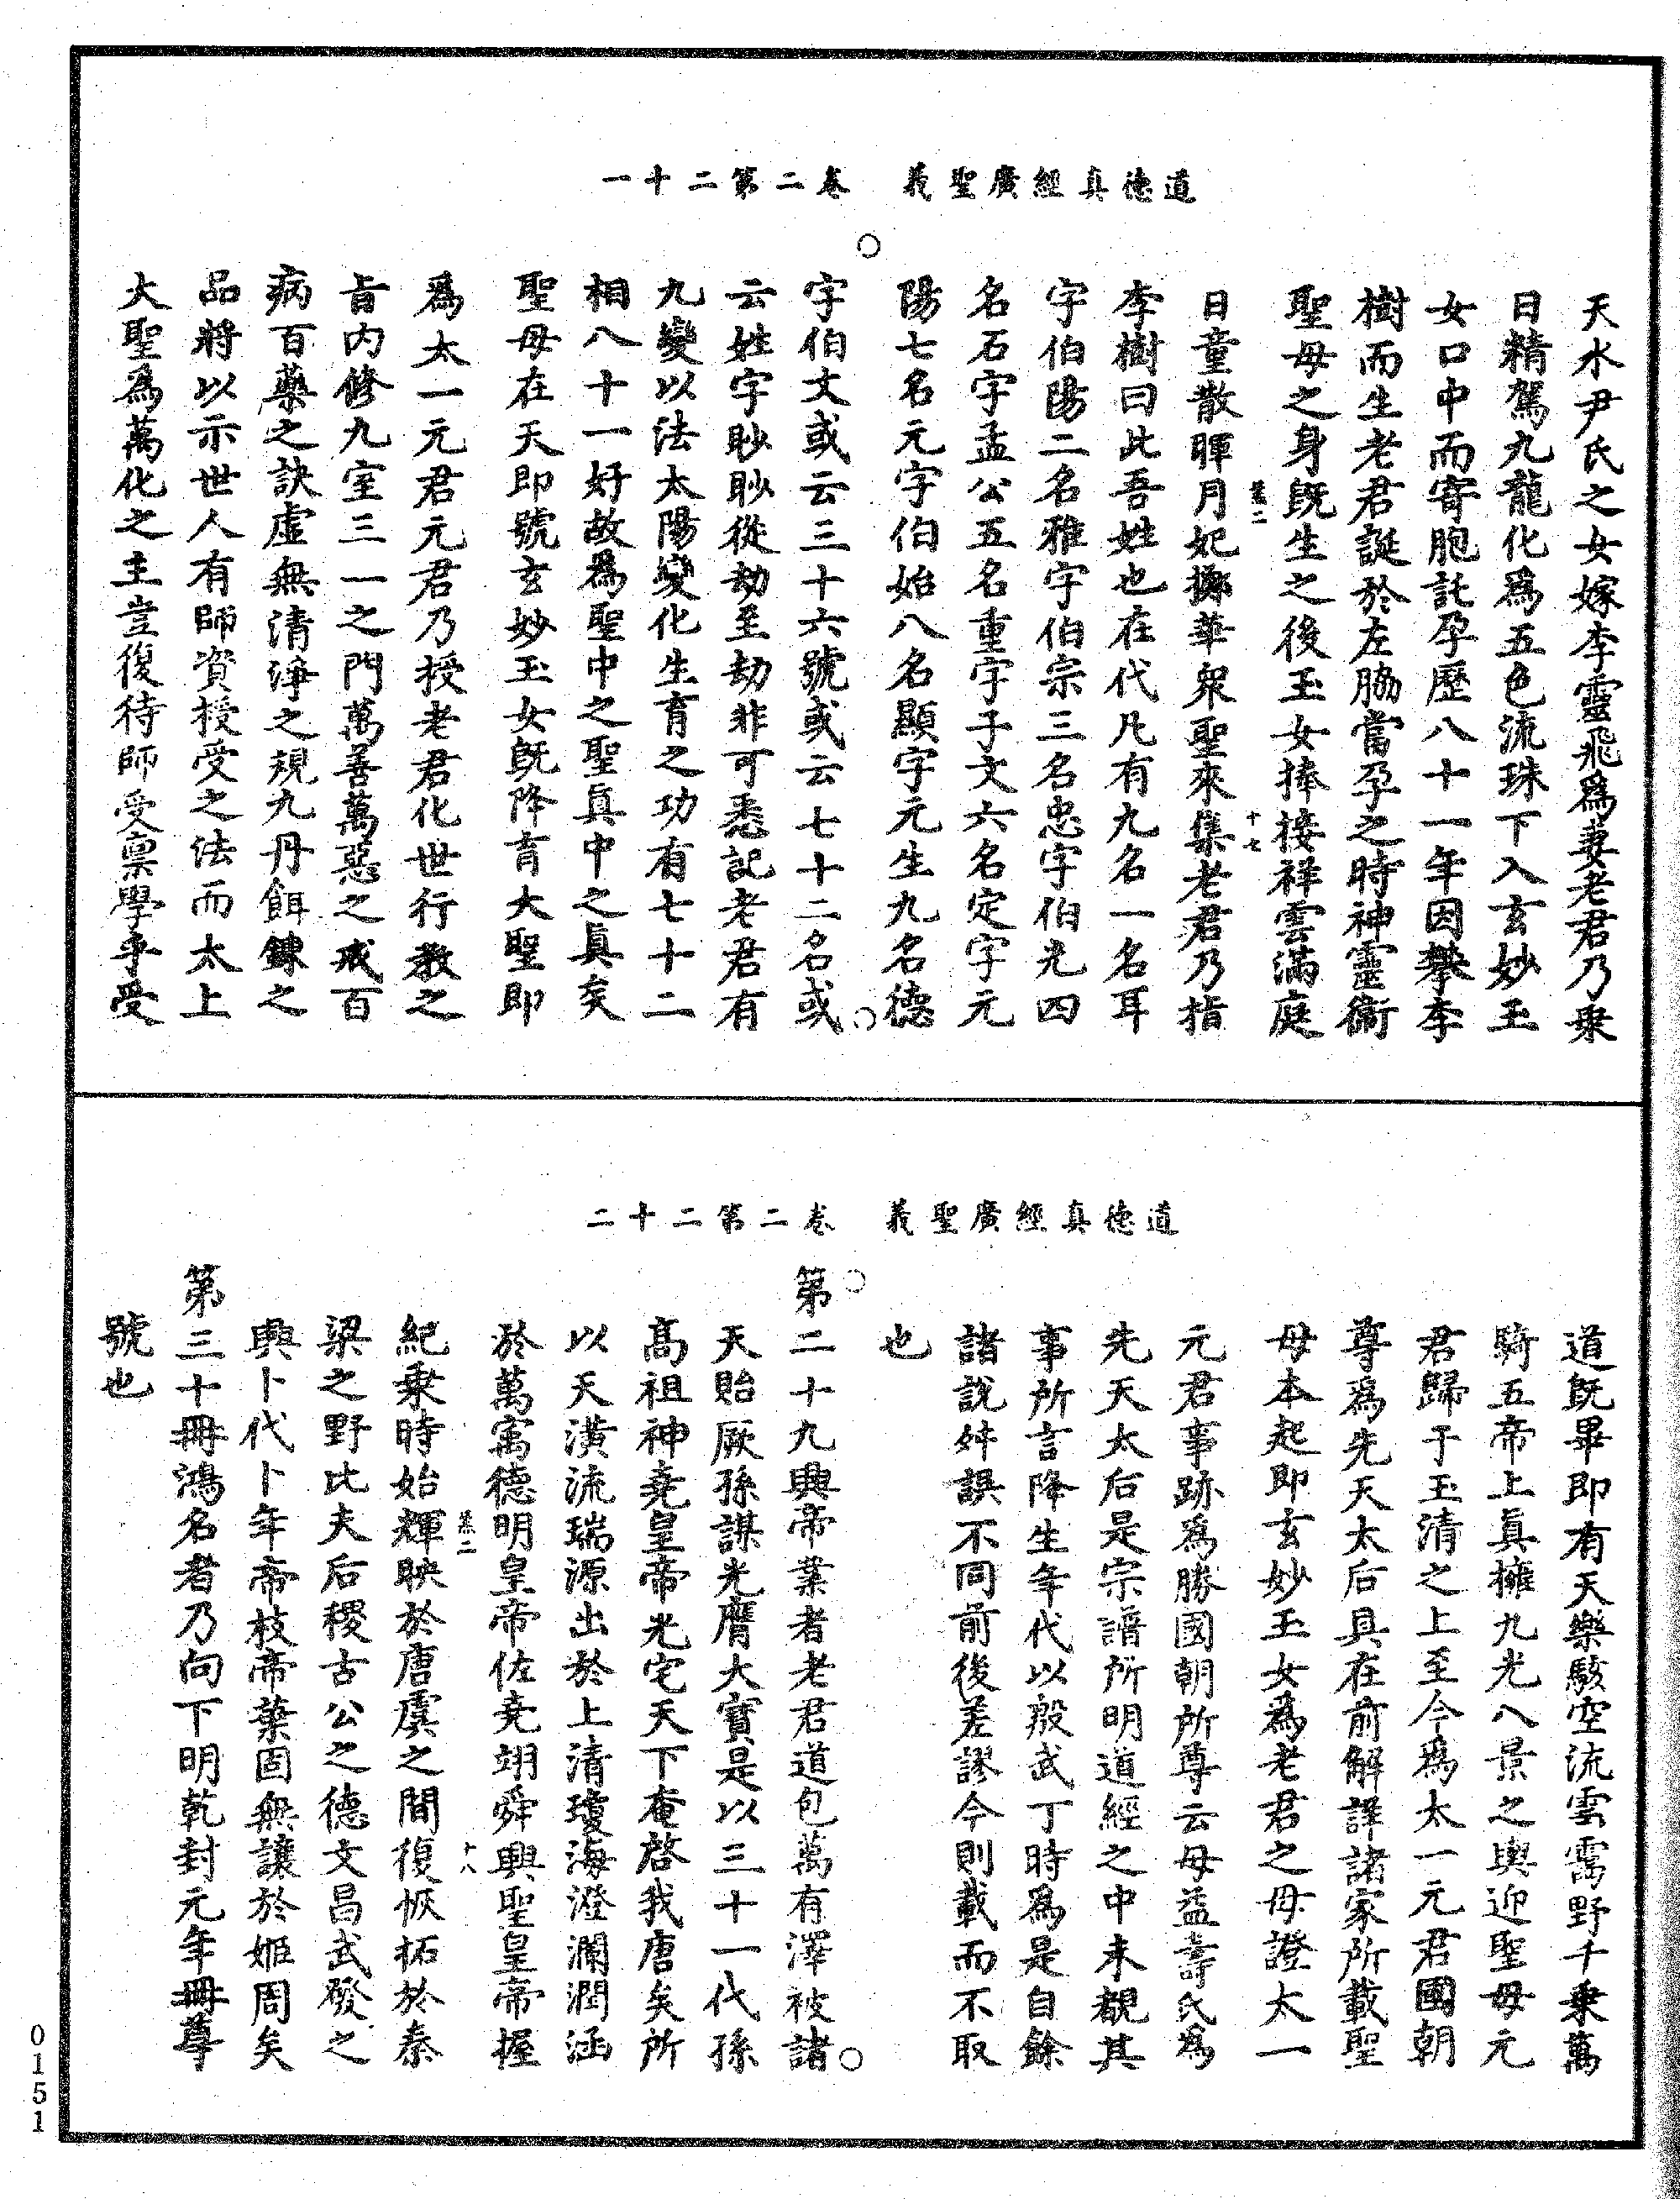 道德真經廣聖義　卷二第二十一
天水尹氏之女嫁李靈飛爲妻老君乃乗
日精駕九龍化爲五色流珠下入玄妙玉
女口中而寄胞託孕歷八十一年因攀李
樹而生老君誕於左脇當孕之時神靈衛
聖母之身旣生之後玉女捧接祥雲滿庭
日童散暉月妃擲華衆聖來集老君乃指
李樹曰此吾姓也在代凡有九名一名耳
字伯陽二名雅字伯宗三名忠字伯光四
名石字孟公五名重字子文六名定字元
陽七名元字伯始八名顯字元生九名德
字伯文或云三十六號或云七十二名或
云姓字眇眇從劫至劫非可悉記老君有
九變以法太陽變化生育之功有七十二
相八十一好故爲聖中之聖真中之真矣
聖母在天即號玄妙玉女旣降育大聖即
爲太一元君元君乃授老君化世行教之
旨内修九室三一之門萬善萬惡之戒百
病百藥之訣虛無清淨之規九丹餌鍊之
品將以示世人有師資授受之法而太上
大聖爲萬化之主豈復待師受稟學乎受
十七
道德真經廣聖義　卷二第二十二
道旣畢即有天樂駭空流雲靄野千乗萬
騎五帝上真擁九光八景之輿迎聖母元
君歸于玉清之上至今爲太一元君國朝
尊爲先天太后具在前解譯諸家所載聖
母本起即玄妙玉女爲老君之母證太一
元君事跡爲勝國朝所尊云母益壽氏爲
先天太后是宗譜所明道經之中未覩其
事所言降生年代以殷武丁時爲是自餘
諸說舛誤不同前後差謬今則載而不取
也
第二十九興帝業者老君道包萬有澤被諸
天貽厥孫謀光膺大寶是以三十一代孫
高祖神堯皇帝光宅天下奄啓我唐矣所
以天潢流瑞源出於上清瓊海澄瀾潤涵
於萬寓德明皇帝佐堯翊舜興聖皇帝握
紀乗時始輝映於唐虞之間復恢拓於秦
梁之野比夫后稷古公之德文昌武發之
興卜代卜年帝枝帝葉固無讓於姬周矣
第三十冊鴻名者乃向下明乾封元年冊尊
號也
十八
0151